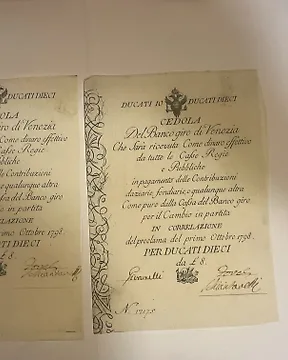 DUCATI DIECI
CEDOLA
giro di Venezia
Come dinaro effettivo
Casse Regie
Pubbliche
delle Contribuzioni
e qualunque altra
del Banco giro
in partita
CORRELAZIONE
Ottobre 1798.
DUCATI DIECI
£ 8.
DUCATI 10 DUCATI DIECI
CEDOLA
Del Banco giro di Venezia
Che Sarà ricevuta Come dinaro effettivo
da tutte le Casse Regie
e Pubbliche
in pagamento delle Contribuzioni
daziarie, fondiarie e qualunque altra
Come pure dalla Cassa del Banco giro
per il Cambio in partita
IN CORRELAZIONE
del proclama del primo Ottobre 1798.
PER DUCATI DIECI
da £ 8.